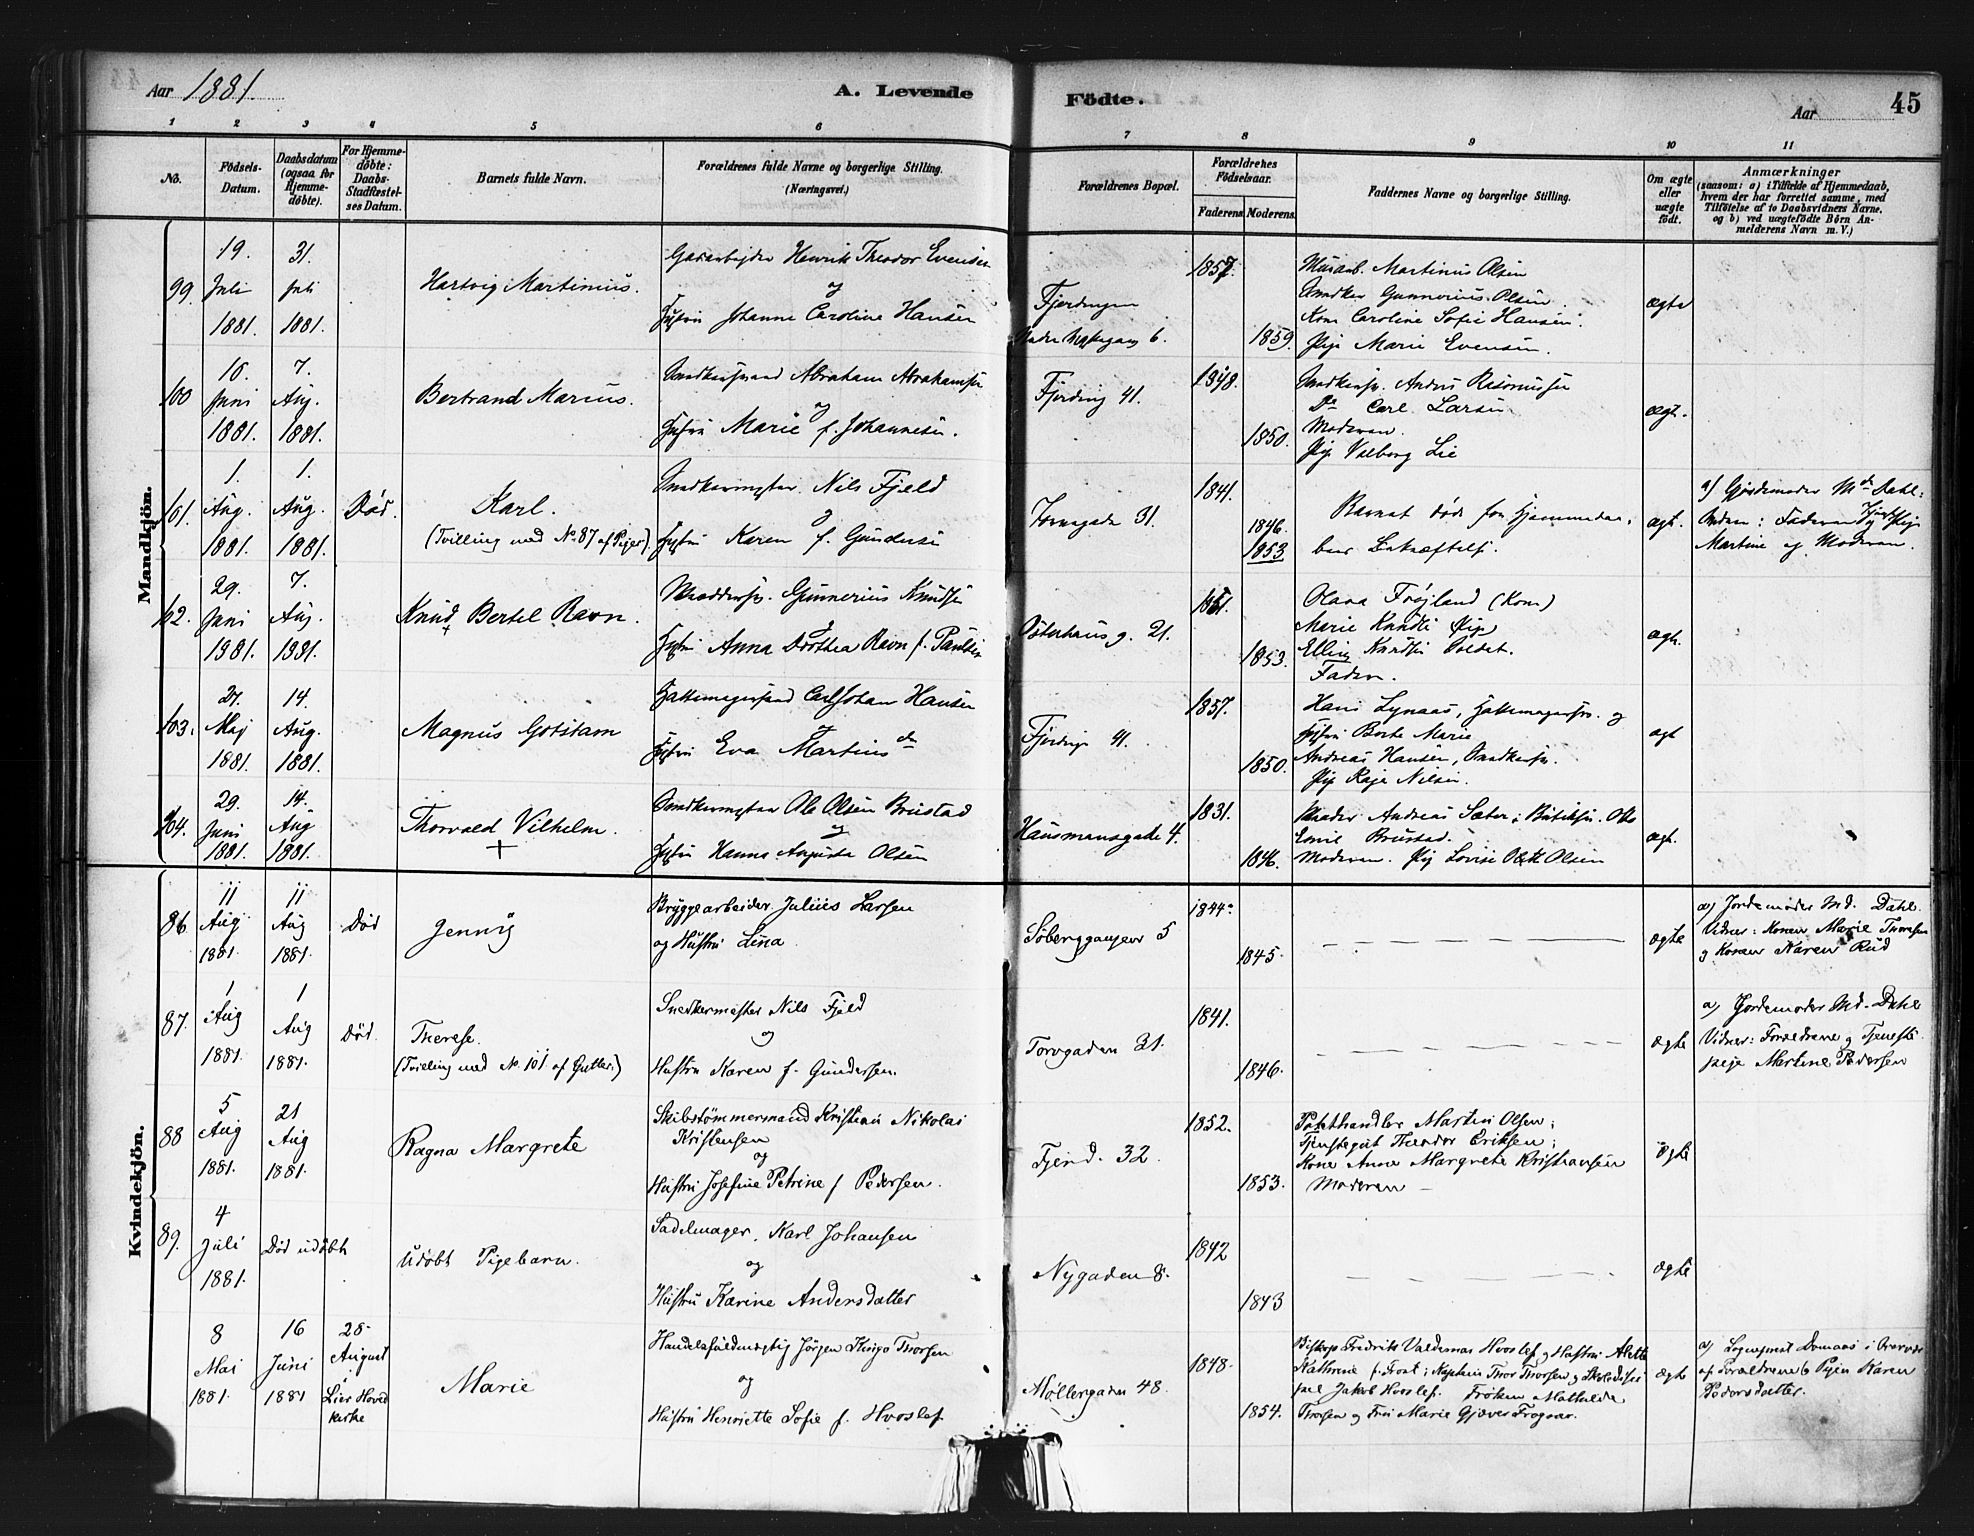 Aar 1881.
A. Levende
Födte.
Aar
45
1 2 3 4 5 6 7 8 9 10 11
No.
Födsels-
Datum.
Daabsdatum
(ogsaa for
Hjemme-
døbte).
For Hjemme-
døbte:
Daabs-
Stadfæstel-
ses Datum.
Barnets fulde Navn.
Forældrenes fulde Navne og borgerlige Stilling.
(Næringsvei.)
Forældrenes Bopæl.
Forældrenes
Födselsaar.
Faderens
Moderens.
Faddernes Navne og borgerlige Stilling.
Om ægte
eller
uægte
født.
Anmærkninger
(saasom: a) i Tilfælde af Hjemmedaab,
hvem der har forrettet samme, med
Tilføielse af to Daabsvidners Navne,
og b) ved uægtefødte Børn An-
melderens Navn m. V.)
Mandkjön.
99.
19.
Juli
1881.
31.
Juli
1881.
Hartvig Martinius.
Gasarbejder Henrik Theodor Evensen
og
Hustru Johanne Caroline Hansen
Fjerdingen
6.
1857.
1859.
Martinius Olsen
Snedker Gunnerius Olsen
Kone Caroline Sofie Hansen
Pige Marie Evensen.
ægte
100
16.
Juni
1881.
7.
Aug.
1881.
Bertrand Marius.
Snedkersvend Abraham Abrahamsen
og
Hustru Marie f. Johannesen.
Fjerding 41.
1848.
1850.
Snedkersv. Anders Rasmussen
Do Carl Larsen
Moderen.
Pige Valborg Lie
ægt.
101.
1.
Aug.
1881.
1.
Aug.
1881.
Död.
Karl.
(Tvilling med No. 87 af Piger)
Snedkermester Nils Fjeld
og
Hustru Karen f. Gundersen
Torvegade 31.
1841.
1846.
1853.
Barnet døde før Hjemmedaa-
bens Bekræftelse.
ægt.
a) Gjordemoder Md. Dahl:
Faderen Tjenestepige
Martine og Moderen.
102.
29.
Juni
1881.
7.
Aug.
1881.
Knud Bertel Ravn.
+
Skræddersv. Gunnerius Knudsen
og
Hustru Anna Dorthea Ravn f. Paulsen
Osterhaus g. 21.
1851.
1853.
Olava Frøjland (Kone)
Marie Knudsen Pige
Elling Knudsen Soldat.
Faderen.
ægt.
103.
27.
Maj
1881.
14.
Aug.
1881.
Magnus Gotstam
Hattemagersvend Carl Johan Hansen
og
Hustru Eva Martinusdr
Fjerding 41.
1857.
1850.
Hans Lynaas, Hattemagersv. og
Hustru Berte Marie
Andreas Hansen, Snedkersv.
Pige Kaja Nilsen.
ægt
104.
29.
Juni
1881.
14.
Aug
1881.
Thorvald Vilhelm.
+
Snedkermester Ole Olsen Brustad
og
Hustru Hanna Augusta Olsen
Hausmansgade 4.
1831.
1846.
Andreas Sæter; Butiksv. Otto
Emil Brustad.
Moderen. Pig Lovise Olsen
ægt.
Kvindekjön.
86
11
Aug
1881.
11
Aug
1881.
Död
Jenny
Bryggearbeider Julius Larsen
og Hustru Lina
Söberggangen 5
1844.
1845.
ægte
a) Jordemoder Md. Dahl.
Vidner: Konen Marie Thoresen
og Konen Karen Rud
87.
1
Aug
1881.
1
Aug
1881.
Död.
Therese.
(Tvilling med No. 101 af Gutter.)
Snedkermester Nils Fjeld
og
Hustru Karen f. Gundersen.
Torvgaden 31.
1841.
1846.
ægte
a) Jordemoder Md. Dahl
Vidner: Forældrene og Tjeneste-
pige Martine Pedersen
88
5
Aug
1881.
21
Aug
1881.
Ragna Margrete
Skibstömmermand Kristian Nikolai
Kristensen
og
Hustru Josefine Petrine f Pedersen.
Fjerd. 32.
1852.
1853.
Potethandler Martin Olsen;
Tjenstegut Theodor Eriksen;
Kone Anne Margrete Kristiansen
Moderen
ægte
89.
4
Juli
1881.
Död udöbt
Udöbt Pigebarn.
Sadelmager Karl Johansen
og
Hustru Karine Andersdatter
Nygaden 8.
1842
1843
ægte
8
Mai
1881.
16
Juni
1881
28.
August
i
Lier Hoved
kirke
Marie
Handelsfuldmægtig Jörgen Kingo Thorsen
og
Hustru Henriette Sofie f. Hvoslef
Möllergaden 48.
1848.
1854.
Biskop Fredrik Valdemar Hvoslef og Hustru Alette
Kathrine f. Frost; Kaptein Thor Thorsen og
Jakob Hvoslef. Fröken Mathilde
Thorsen og Fru Marie Gjæver Frognar.
ægte
a) Sogneprest Domaas i
af Forældrene & Pigen Karen
Pedersdatter.